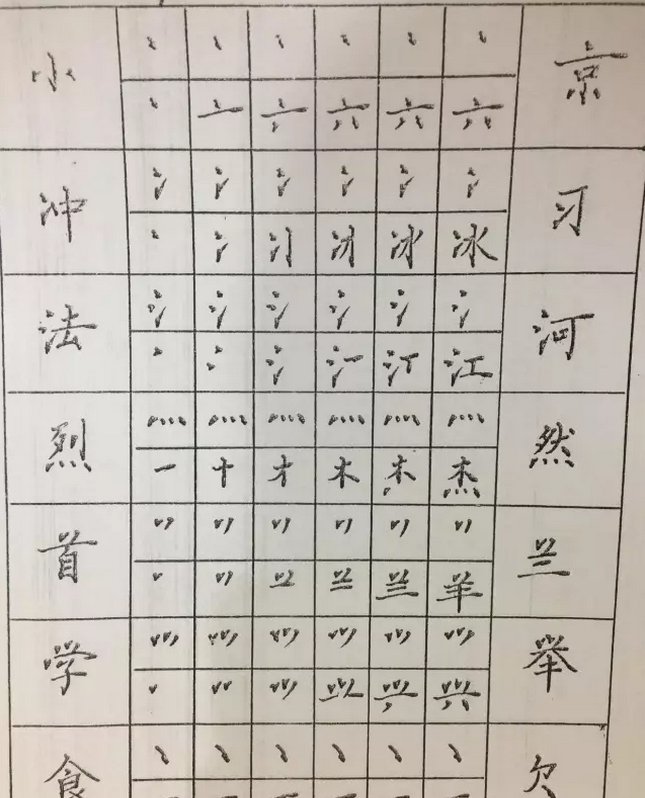 小 丶 丶 丶 丶 丶 丶 京
丶 亠 六 六 六
冲 冫 冫 冫 冫 冫 冫 习
丶 冫 冰
法 氵 氵 氵 氵 氵 氵 河
丶 冫 氵 汀 江
烈 灬 灬 灬 灬 灬 灬 然
一 十 才 木 杰
首 丷 丷 丷 丷 丷 丷 兰
丶 丷 兰 羊
学 ⺍ ⺍ ⺍ ⺍ ⺍ ⺍ 举
丶 ⺍ 兴
食 丶 丶 丶 丶 丶 丶 欠